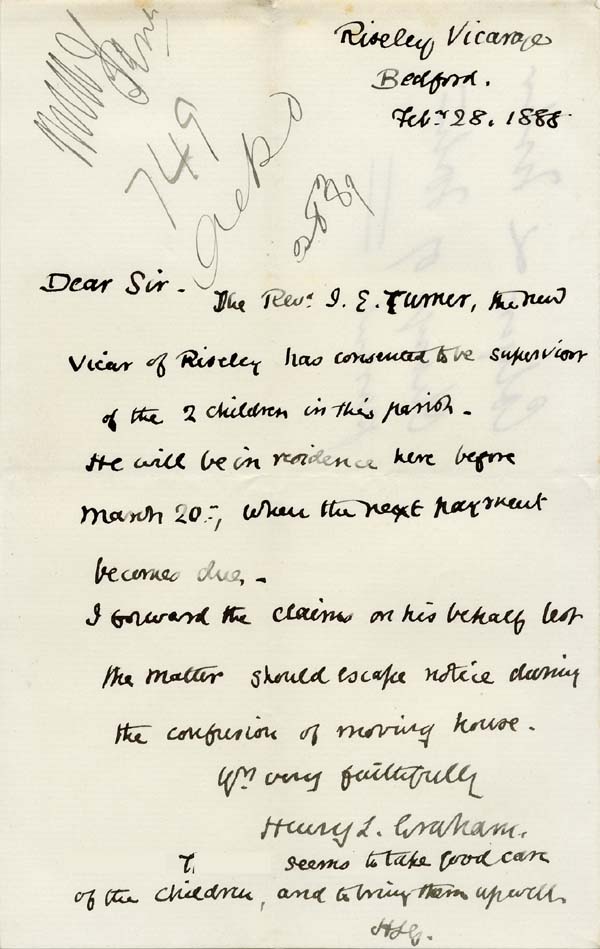 749
Riseley Vicarage
Bedford.
Feby 28. 1888.
Dear Sir - The Revd. J. E. Turner, the new
Vicar of Riseley has consented to be supervisor
of the 2 children in this parish -
He will be in residence here before
March 20th, when the next payment
becomes due. -
I forward the claims on his behalf lest
the matter should escape notice during
the confusion of moving house -
Yrs very faithfully
Henry L. Graham.
T. seems to take good care
of the children, and to bring them up well.
HLG.